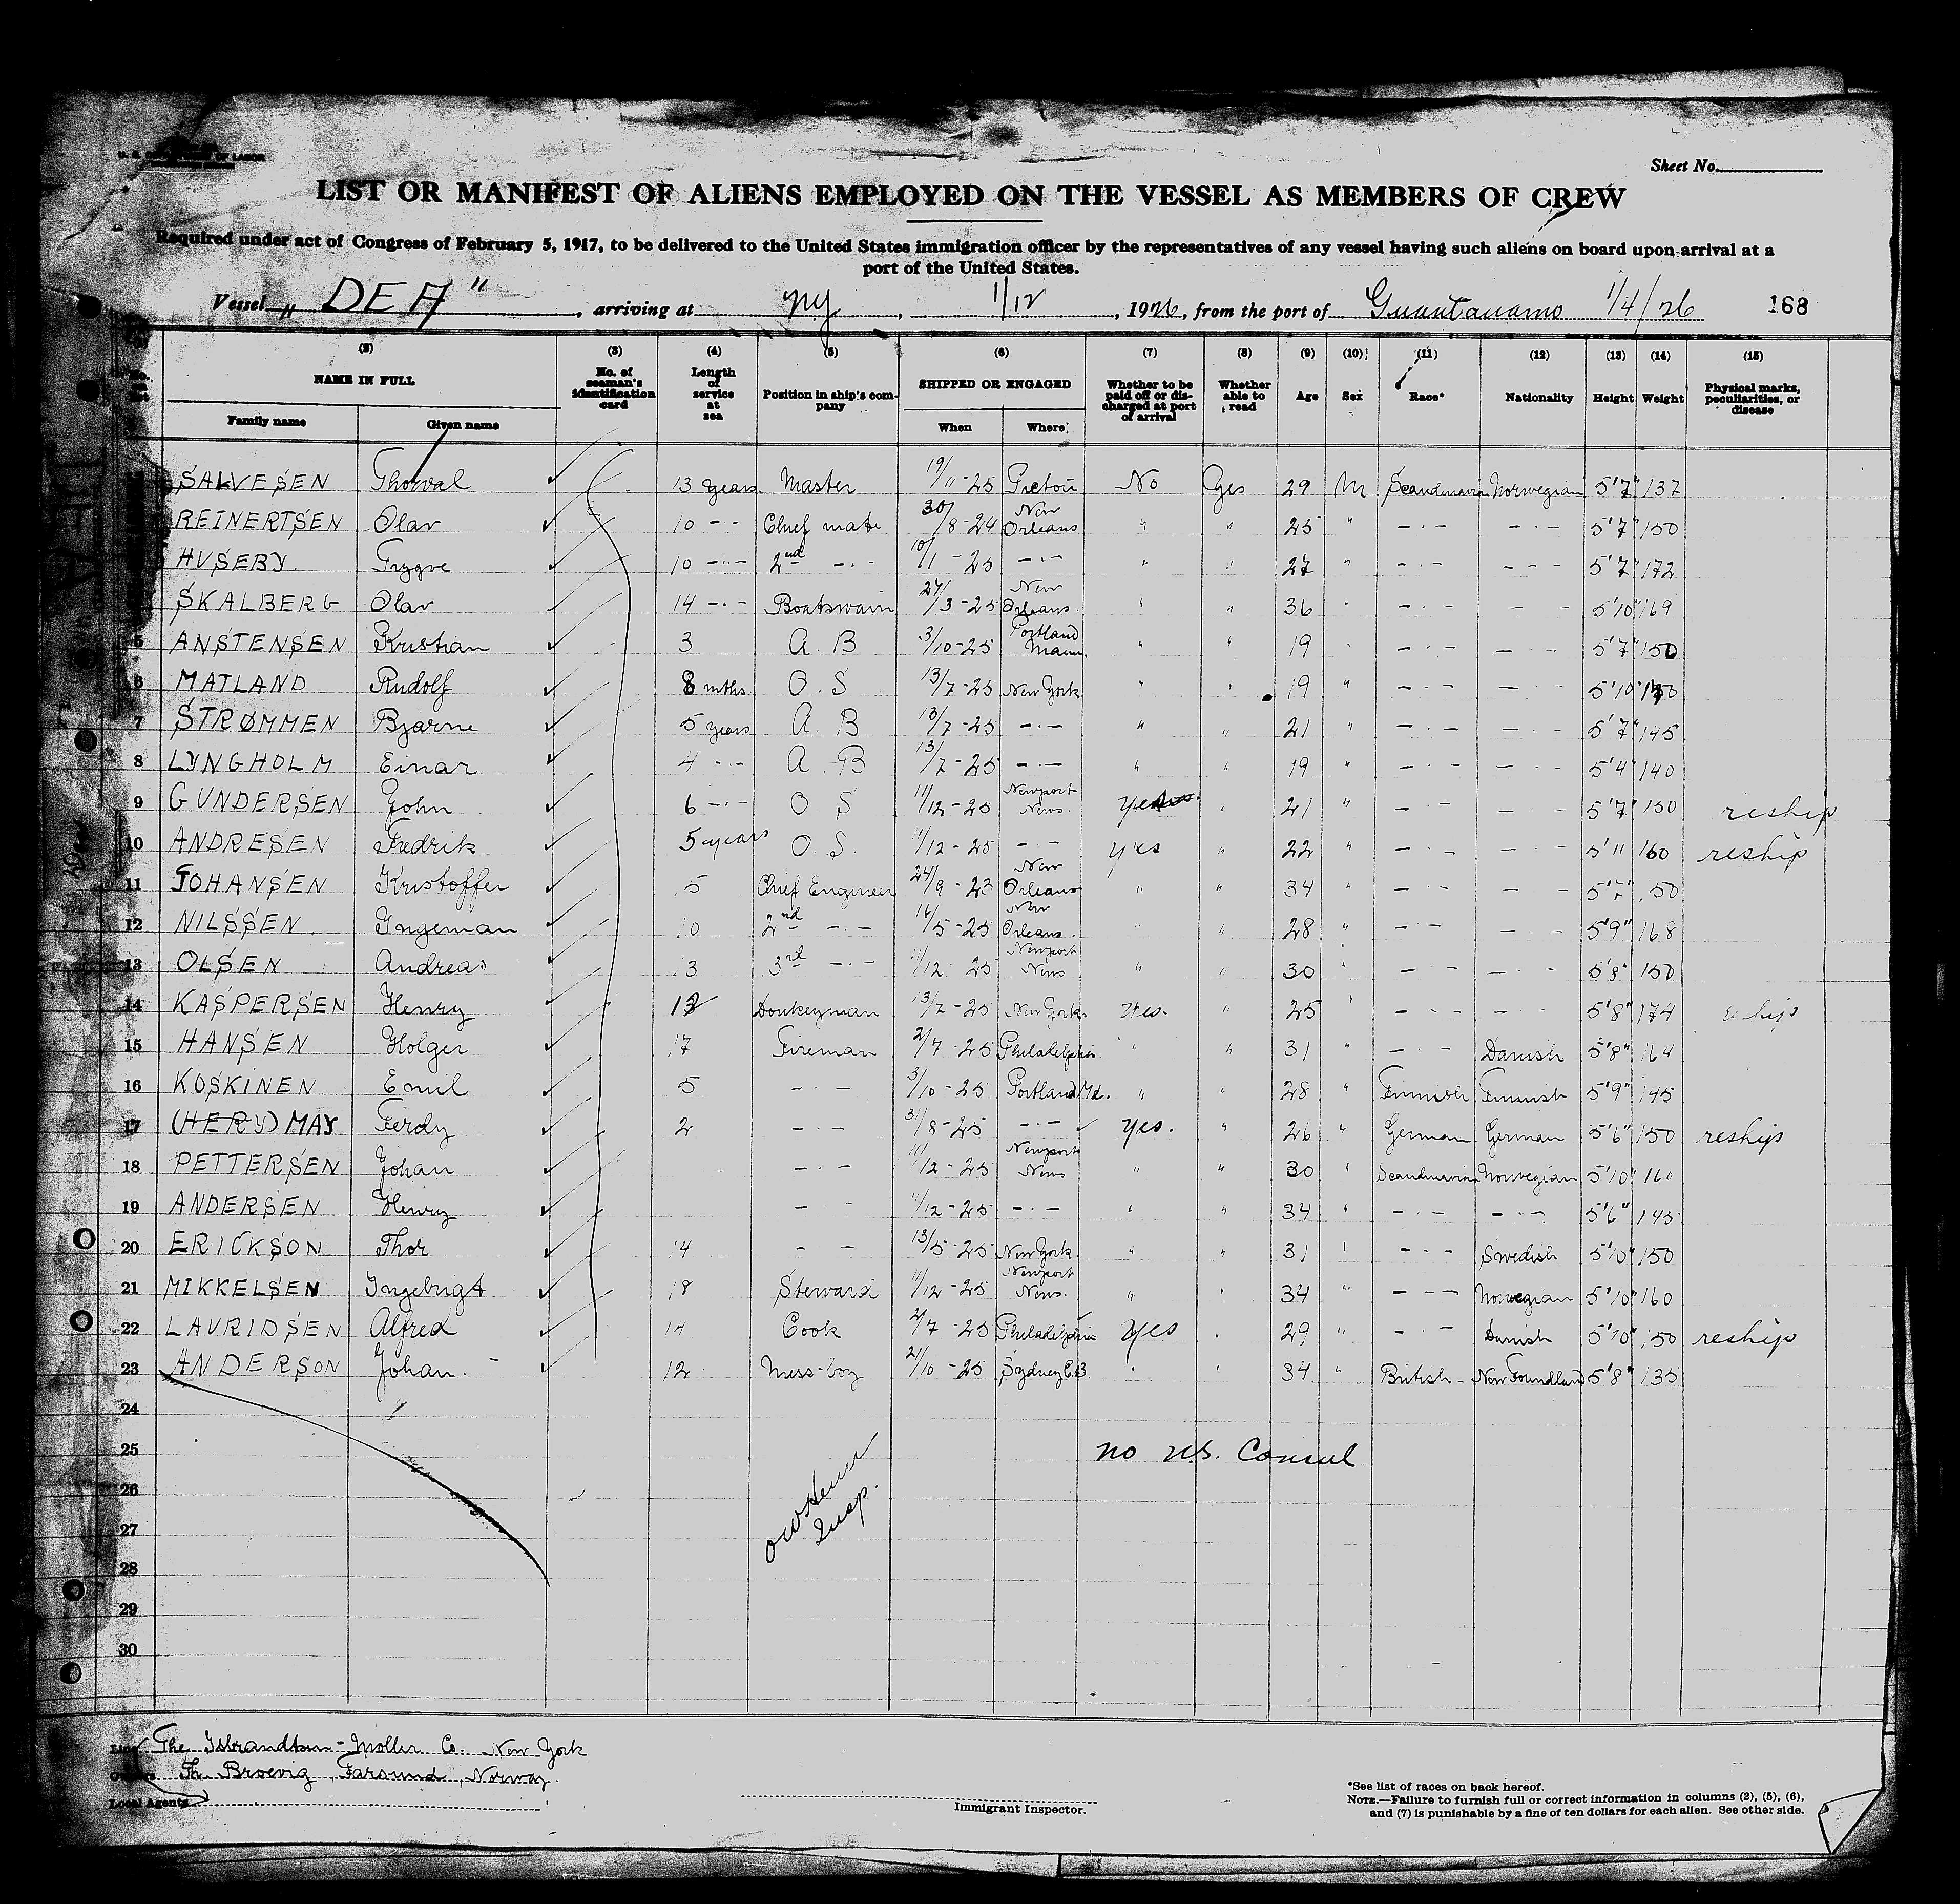 Sheet No.
LIST OR MANIFEST OF ALIENS EMPLOYED ON THE VESSEL AS MEMBERS OF CREW
Required under act of Congress of February 5, 1917, to be delivered to the United States immigration officer by the representatives of any vessel having such aliens on board upon arrival at a
port of the United States.
Vessel „ DEA " , arriving at NY , 1/12 , 1926, from the port of Guantanamo 1/4/26 168
(2) (3) (4) (5) (6) (7) (8) (9) (10) (11) (12) (13) (14) (15)
NAME IN FULL No. of seaman's identification card Length of service at sea Position in ship's company SHIPPED OR ENGAGED Whether to be paid off or discharged at port of arrival Whether able to read Age Sex Race* Nationality Height Weight Physical marks, peculiarities, or disease
Family name Given name When Where
SALVESEN Thorval 13 years Master 19/11-25 Pictou No Yes 29 M Scandinavian Norwegian 5'7" 137
REINERTSEN Olav 10 -·- Chief mate 30/8-24 New Orleans " " 25 " -·- -·- 5'7" 150
HUSEBY. Trygve 10 -·- 2nd -·- 10/1-25 -·- " " 27 " -·- -·- 5'7" 172
SKALBERG Olav 14 -·- Boatswain 24/3-25 New Orleans. " " 36 " -·- -·- 5'10" 169
5 ANSTENSEN Kristian 3 A B 3/10-25 Portland " " 19 " -·- -·- 5'7" 150
6 MATLAND Rudolf 8 mths O. S 13/7-25 New York " " 19 " -·- -·- 5'10"
7 STRØMMEN Bjarne 5 years A. B 13/7-25 -·- " " 21 " -·- -·- 5'7" 145
8 LYNGHOLM Einar 4 -·- A. B 13/7-25 -·- " " 19 " -·- -·- 5'4" 140
9 GUNDERSEN John 6 -·- O S 11/12-25 Newport News. Yes " 21 " -·- -·- 5'7" 150 reship
10 ANDRESEN Fredrik 5 years O. S. 11/12-25 -·- yes " 22 " -·- -·- 5'11 160 reship
11 JOHANSEN Kristoffer 5 Chief Engineer 24/9-23 New Orleans " " 34 " -·- -·- 5'7" 150
12 NILSSEN. Ingeman 10 2nd -·- 16/5-25 New Orleans. " " 28 " -·- -·- 5'9" 168
13 OLSEN Andreas 13 3rd -·- 11/12 25 Newport News " " 30 " -·- -·- 5'8" 150
14 KASPERSEN Henry 12 Donkeyman 13/7-25 New York. Yes. " 25 " -·- -·- 5'8" 174 reship
15 HANSEN Holger 17 Fireman 2/7-25 Philadelphia " " 31 " -·- Danish 5'8" 164
16 KOSKINEN Emil 5 -·- 3/10-25 Portland Me. " " 28 " Finnish Finnish 5'9" 145
17 (HERY) MAY Ferdy 2 -·- 31/8-25 -·- Yes. " 26 " German German 5'6" 150 reship
18 PETTERSEN Johan -·- 11/12-25 Newport News " " 30 " Scandinavian Norwegian 5'10" 160
19 ANDERSEN Henry - - 11/12-25 -·- " " 34 " -·- -·- 5'6" 145
20 ERICKSON Thor 14 - - 13/5-25 New York. " " 31 " -·- Swedish 5'10" 150
21 MIKKELSEN Ingebrigt 18 Steward 11/12-25 Newport News. " " 34 " -·- Norwegian 5'10" 160
22 LAURIDSEN Alfred 14 Cook 2/7-25 Philadelphia Yes " 29 " -·- Danish 5'10" 150 reship
23 ANDERSON Johan. 12 Mess-boy 21/10-25 Sydney C.B. " " 34 " British New Foundland 5'8" 135
24
25 no U.S. Consul
26
27 Insp.
28
29
30
The Isbrandtsen-Moller Co. New York
Owners Th. Broevig, Farsund, Norway.
Local Agents
Immigrant Inspector.
*See list of races on back hereof.
NOTE.—Failure to furnish full or correct information in columns (2), (5), (6),
and (7) is punishable by a fine of ten dollars for each alien. See other side.